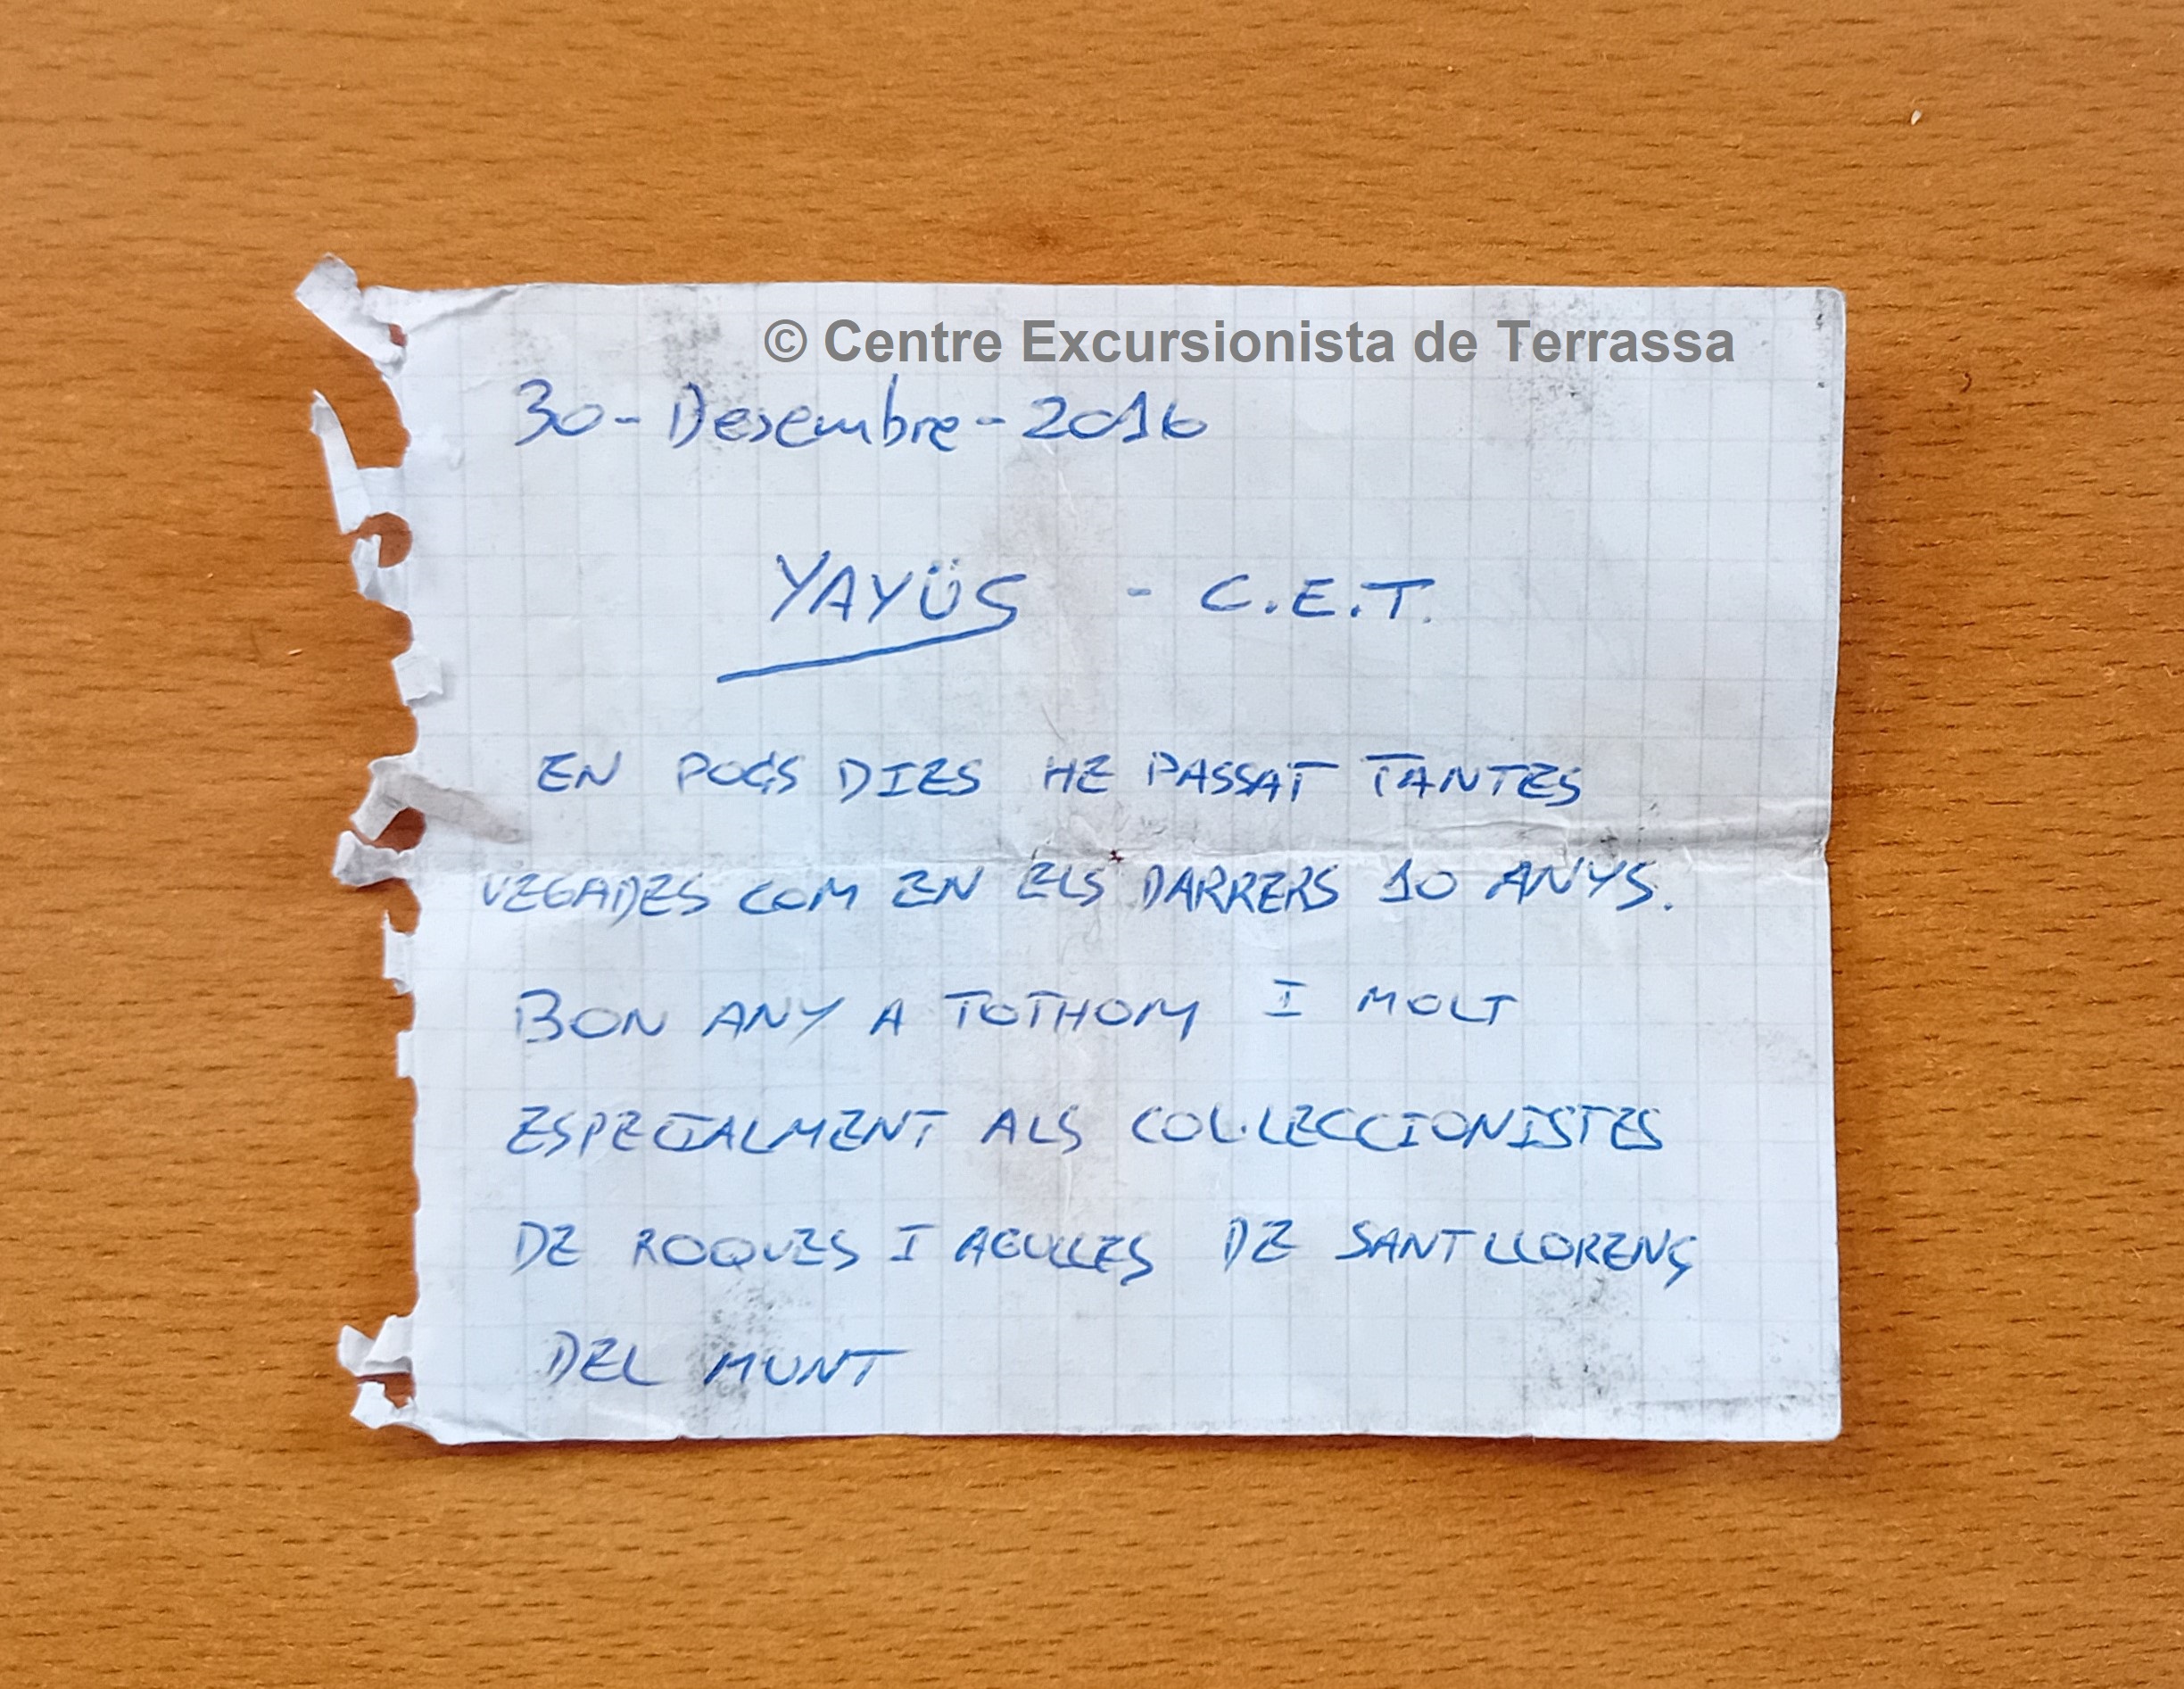 © Centre Excursionista de Terrassa
30-Desembre-2016
YAYÜS - C.E.T.
EN POCS DIES HE PASSAT TANTES
VEGADES COM EN ELS DARRERS 10 ANYS.
BON ANY A TOTHOM I MOLT
ESPECIALMENT ALS COL·LECCIONISTES
DE ROQUES I AGULLES DE SANT LLORENÇ
DEL MUNT